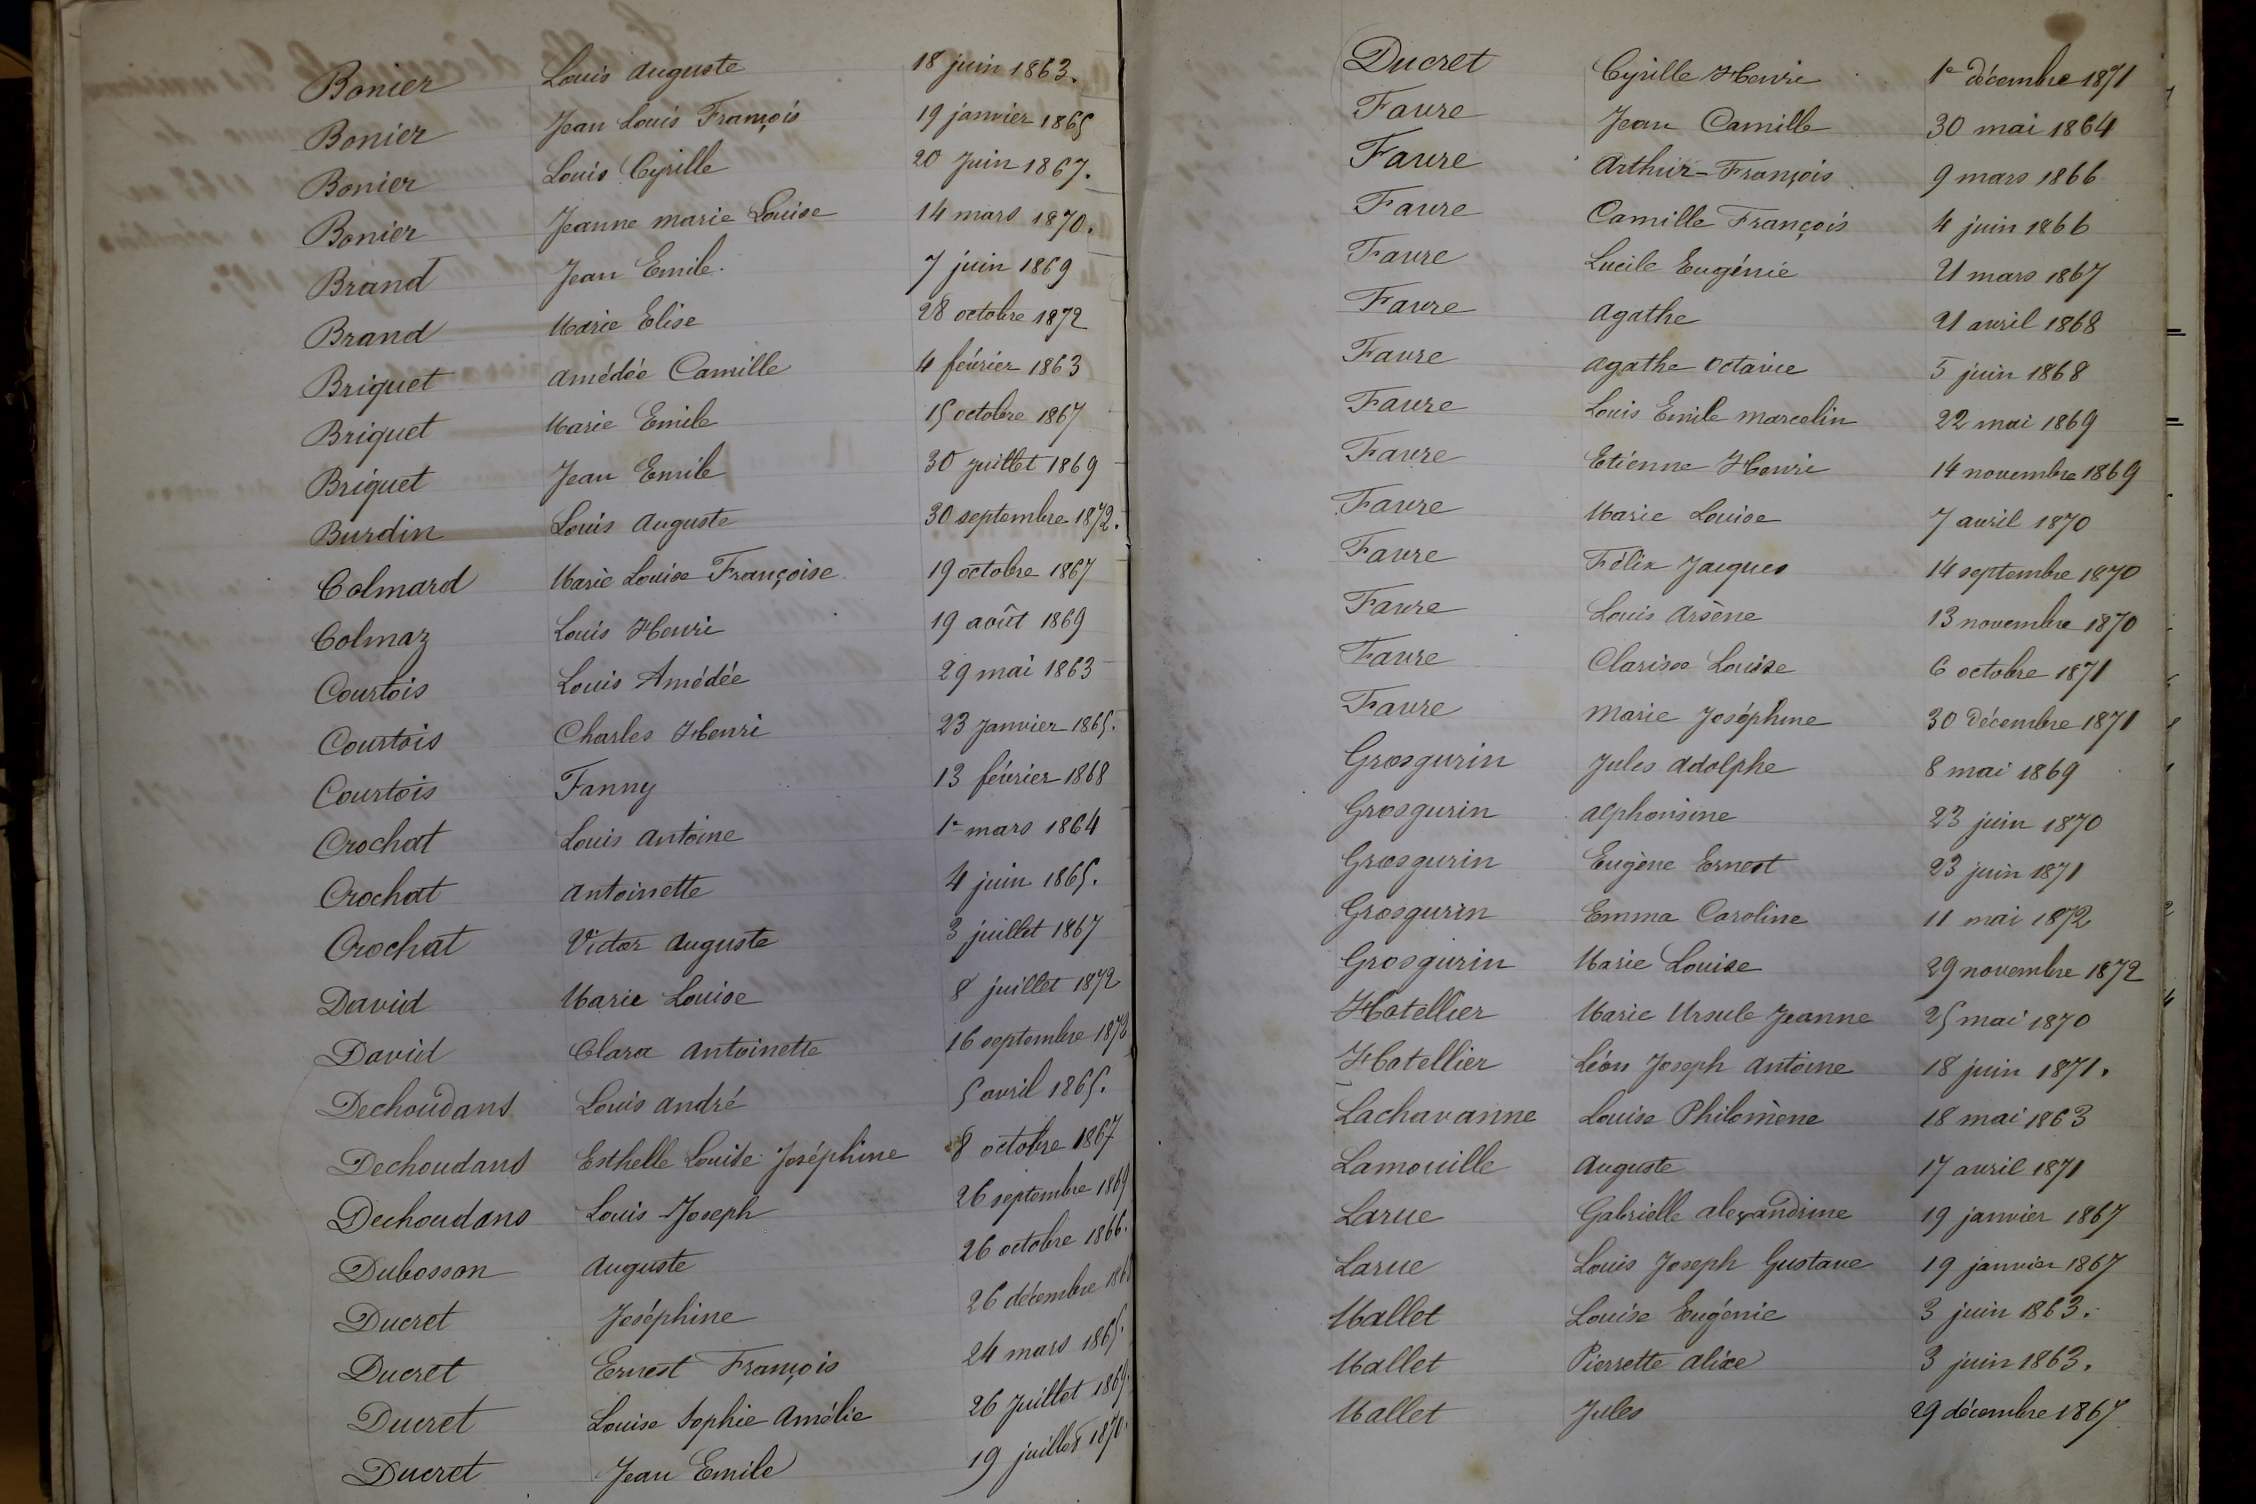 Bonier Louis Auguste 18 juin 1863.
Bonier Jean Louis François 19 janvier 1865
Bonier Louis Cyrille 20 Juin 1867.
Bonier Jeanne Marie Louise 14 mars 1870.
Brand Jean Emile. 7 juin 1869
Brand Marie Elise 28 octobre 1872
Briquet Amédée Camille 4 février 1863
Briquet Marie Emile 15 octobre 1867
Briquet Jean Emile 30 juillet 1869
Burdin Louis Auguste 30 septembre 1872.
Colmard Marie Louise Françoise 19 octobre 1867
Colmaz Louis Henri 19 août 1869
Courtois Louis Amédée 29 mai 1863
Courtois Charles Henri 23 Janvier 1865.
Courtois Fanny 13 février 1868
Crochat Louis Antoine 1er mars 1864
Crochat Antoinette 4 juin 1865.
Crochat Victor Auguste 3 juillet 1867
David Marie Louise 8 juillet 1872
David Clara Antoinette 16 septembre
Dechoudans Louis André 5 avril 1865.
Dechoudans Esthelle Louise Joséphine 8 octobre 1867
Dechoudans Louis Joseph 26 septembre 1869
Dubosson Auguste 26 octobre 1866.
Ducret Joséphine 26 décembre
Ducret Ernest François 24 mars 1865.
Ducret Louise Sophie Amélie 26 Juillet
Ducret Jean Emile 19 juillet 1870.
Ducret Cyrille Henri 1er décembre 1871
Favre Jean Camille 30 mai 1864
Favre Arthur-François 9 mars 1866
Favre Camille François 4 juin 1866
Favre Lucile Eugénie 21 mars 1867
Favre Agathe 21 avril 1868
Favre Agathe Octavie 5 juin 1868
Favre Louis Emile Marcelin 22 mai 1869
Favre Etienne Henri 14 novembre 1869
Favre Marie Louise 7 avril 1870
Favre Félix Jacques 14 septembre 1870
Favre Louis Arsène 13 novembre 1870
Favre Clarisse Louise 6 octobre 1871
Favre Marie Joséphine 30 décembre 1871
Grosgurin Jules Adolphe 8 mai 1869
Grosgurin Alphonsine 23 juin 1870
Grosgurin Eugène Ernest 23 juin 1871
Grosgurin Emma Caroline 11 mai 1872
Grosgurin Marie Louise 29 novembre 1872
Hotellier Marie Ursule Jeanne 25 mai 1870
Hotellier Léon Joseph Antoine 18 juin 1871.
Lachavanne Louise Philomène 18 mai 1863
Lamouille Auguste 17 avril 1871
Larue Gabrielle Alexandrine 19 janvier 1867
Larue Louis Joseph Gustave 19 janvier 1867
Mallet Louise Eugénie 3 juin 1863.
Mallet Pierrette Alice 3 juin 1863.
Mallet Jules 29 décembre 1867